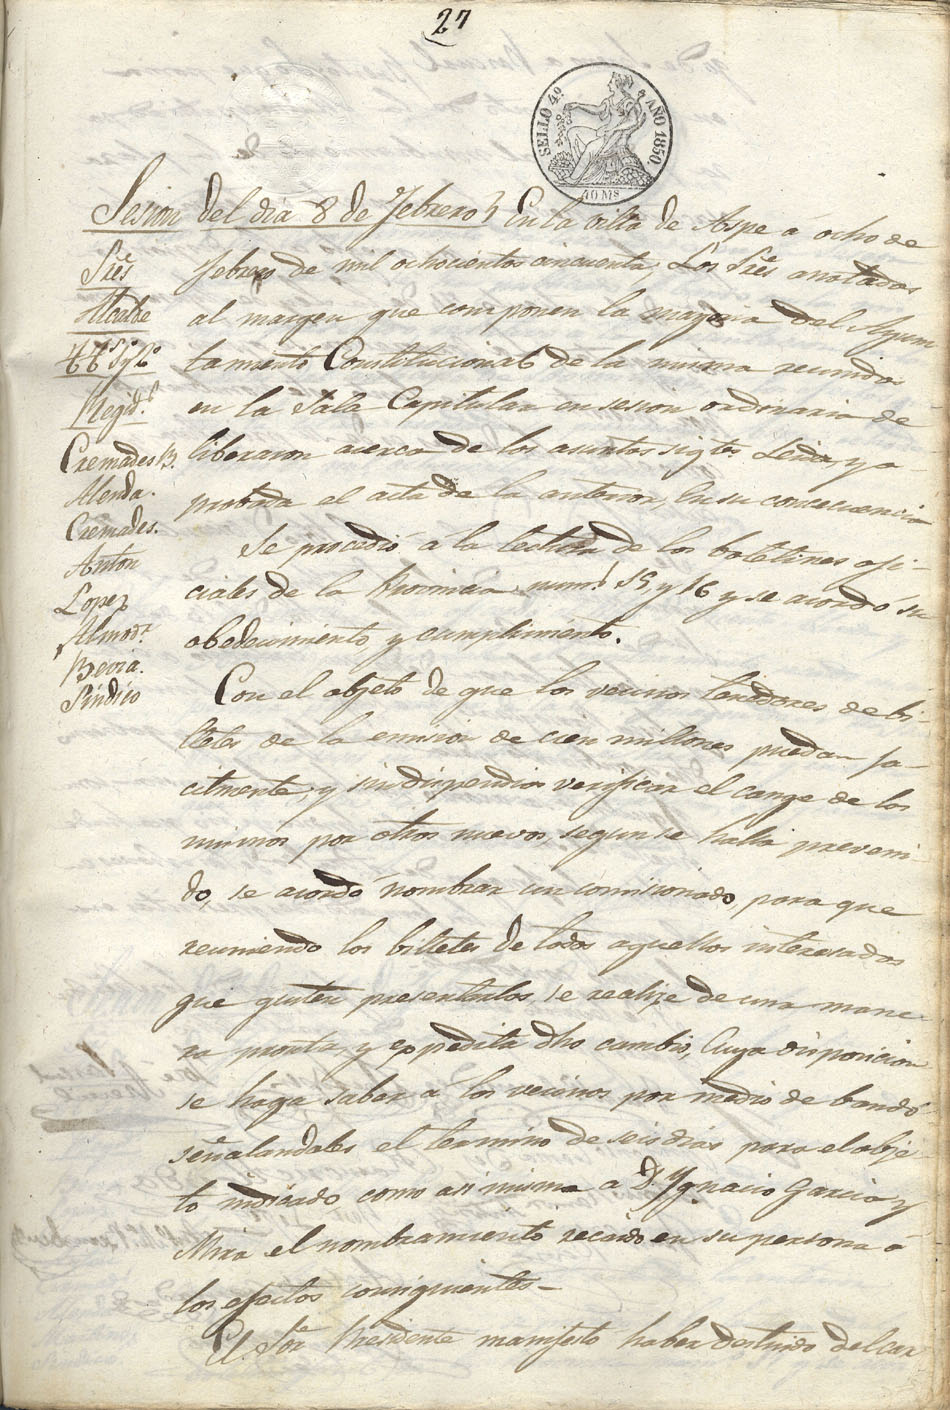 27
SELLO 4º AÑO 1850.
40 Ms
Sesion del dia 8 de Febrero En la villa de Aspe a ocho de
Febrero de mil ochocientos cincuenta, Los Sres anotados
al margen que componen la mayoria del Ayun
tamiento Constitucional de la misma reunidos
en la Sala Capitular en sesion ordinaria de
liberaron acerca de los asuntos sigtes Leida, y a
probada el acta de la anterior, En su consecuencia
Se procedió a la lectura de los boletines ofi-
ciales de la Provincia nums 15, y 16 y se acordó su
obedecimiento, y cumplimiento.
Con el objeto de que los vecinos tenedores de bi-
lletes de la emision de cien millones puedan fa-
cilmente, y sin dispendios verificar el cange de los
mismos por otros nuevos, segun se halla preveni-
do, se acordó nombrar un comisionado, para que
reuniendo los billetes de todos aquellos interesados
que gusten presentarlos, se realize de una mane-
ra pronta, y expedita dho cambio, Cuya disposicion
se haga saber a los vecinos por medio de bando
señalandoles el termino de seis dias para el obje-
to indicado como asi mismo a Dn Ygnacio Garcia y
Mira el nombramiento recaido en su persona a
los efectos consiguientes—
El Sor Presidente manifestó haber destituido del car
Sres
Alcalde
TT 1º y 2º
Regids
Cremades B.
Alenda.
Cremades.
Anton
Lopez
Almodr
Bevia.
Sindico